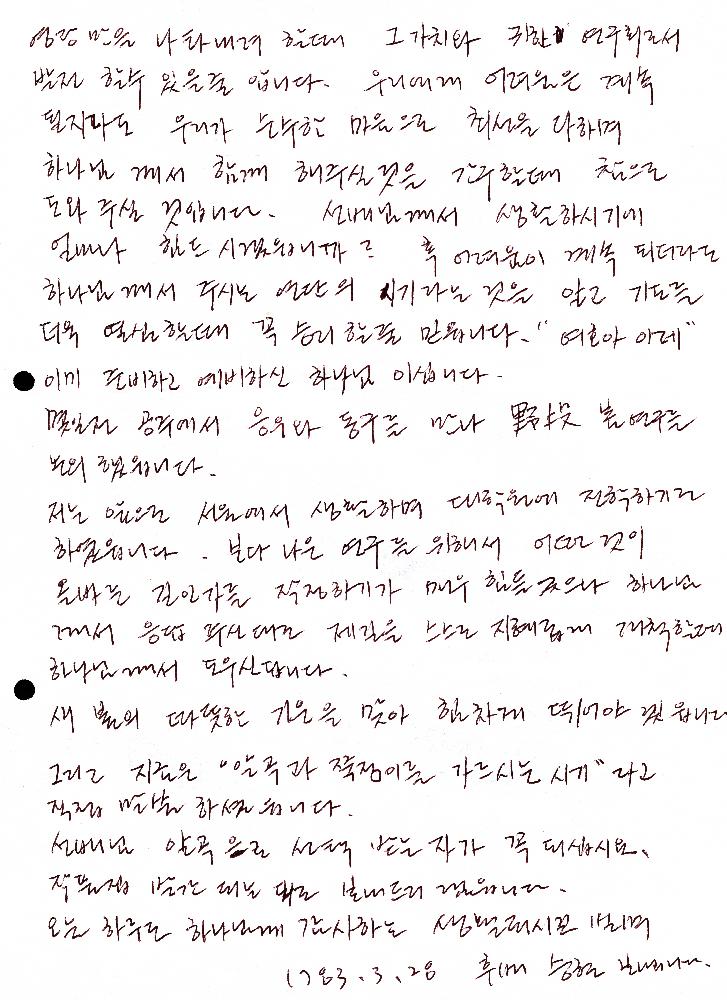 영광 만을 나타내려 할때 그가치와 귀한 연구회로서
발전 할수 있을줄 압니다. 우리에게 어려움은 계속
될지라도 우리가 순수한 마음으로 최선을 다하며
하나님 께서 함께 해주실것을 간구할때 참으로
도와 주실 것입니다. 선배님께서 생활하시기에
얼마나 힘드시겠읍니까? 혹 어려움이 계속 되더라도
하나님께서 주시는 연단의 시기라는 것을 알고 기도를
더욱 열심할때 꼭 승리할줄 믿읍니다. "여호아 이레"
이미 준비하고 예비하신 하나님 이십니다.
몇일전 공주에서 응우와 동구를 만나 野投 볼연구를
논의 했읍니다.
저는 앞으로 서울에서 생활하며 대학원에 진학하기로
하였읍니다. 보다 나은 연구를 위해서 어떠한 것이
올바른 길인가를 작정하기가 매우 힘들었으나 하나님
께서 응답 주신대로 제길을 스스로 지혜롭게 개척할때
하나님께서 도우신답니다.
새 봄의 따뜻한 기운을 맞아 힘차게 뛰어야 겠읍니다
그리고 지금은 "알곡과 쭉정이를 가르시는 시기"라고
직접 말씀 하셨읍니다.
선배님 알곡으로 선택 받는자가 꼭 되십시요.
작품집 발간 되는 대로 보내드리겠읍니다.
오늘 하루도 하나님께 감사하는 생활되시길 빌며
1983.3.28 후배 승현 보냅니다.